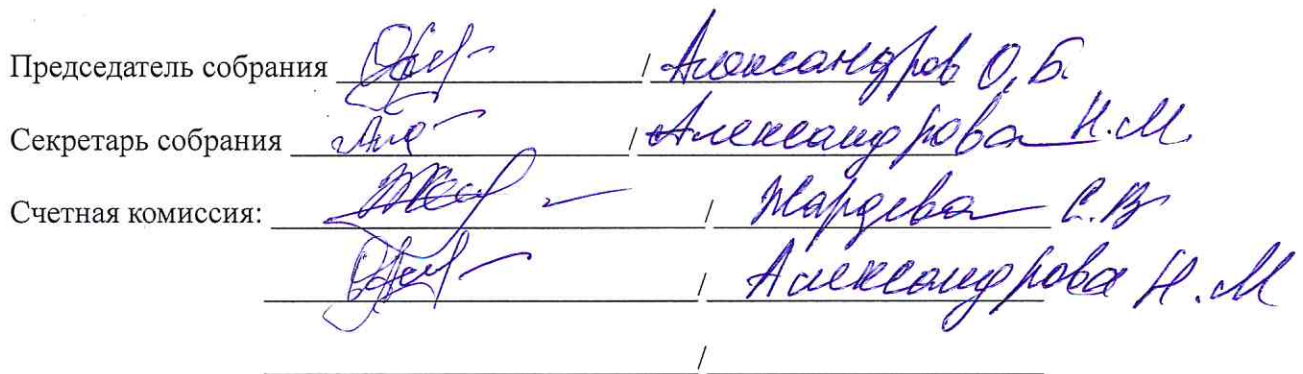 Председатель собрания / Александров О.Б.
Секретарь собрания / Александрова Н.М.
Счетная комиссия: / С.В
/ Александрова Н.М
/